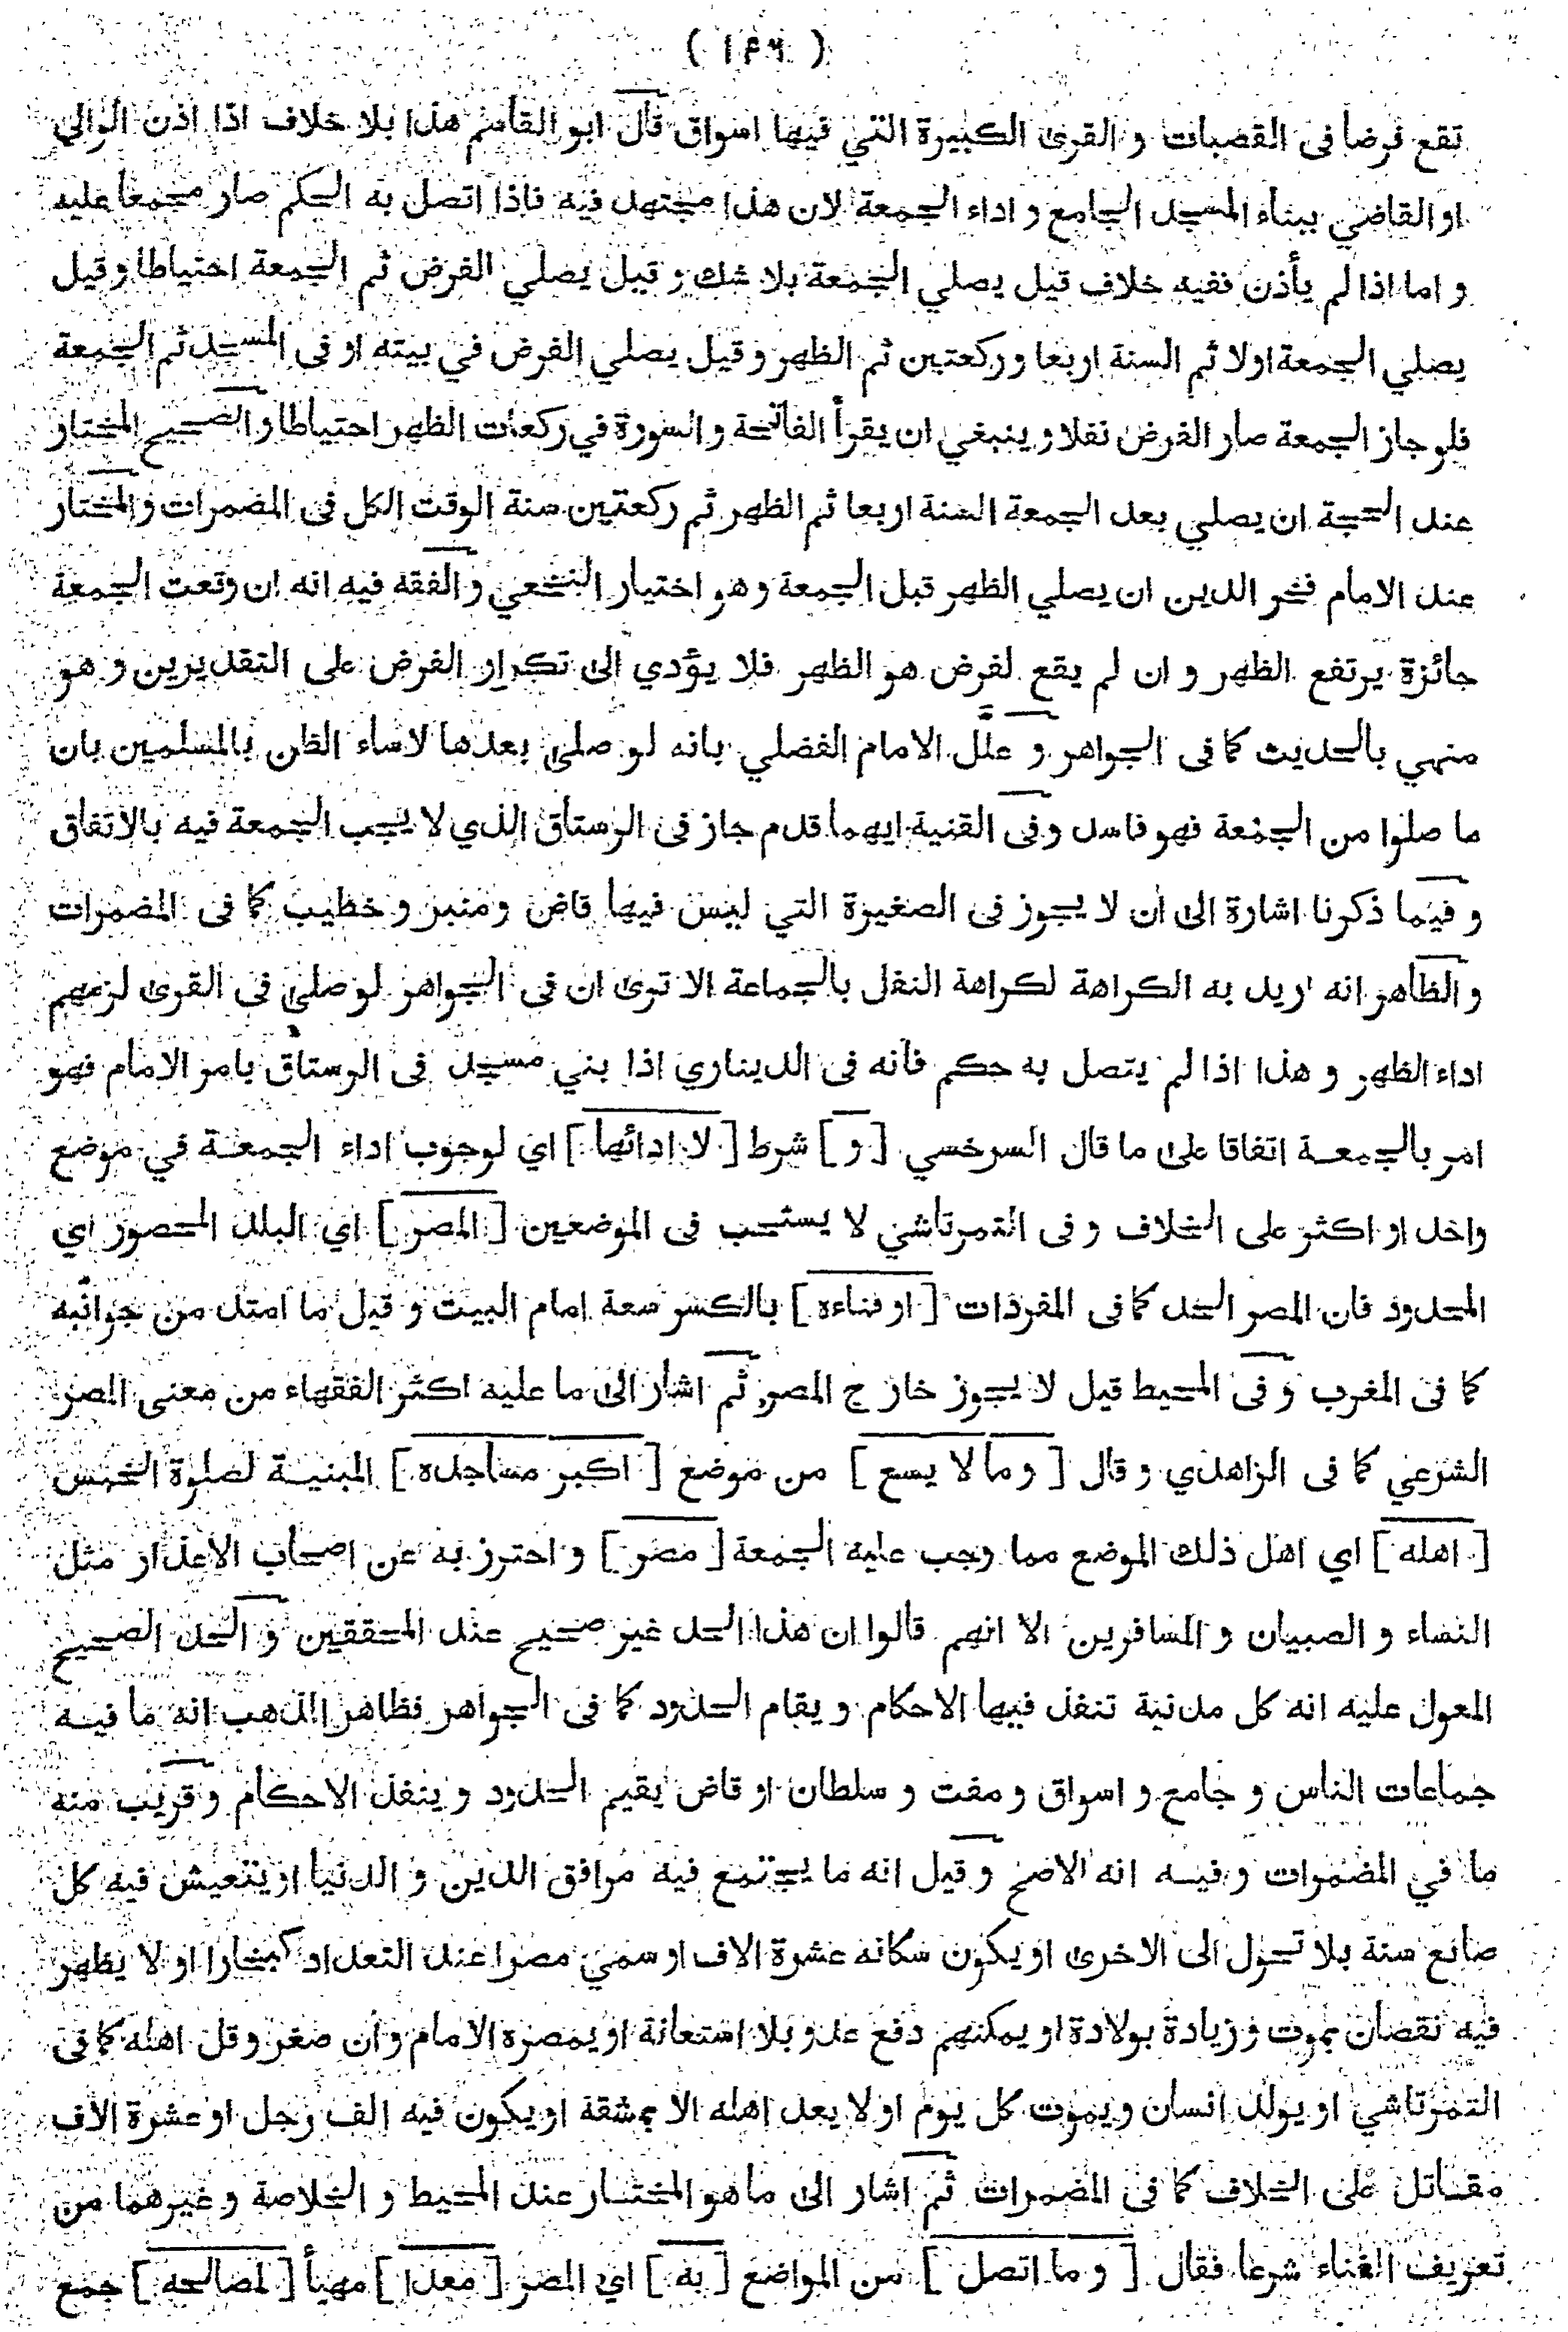 ( ١٤٦ )
تقع فرضا فى القصبات و القرى الكبيرة التي فيها اسواق قال ابو القاسم هذا بلا خلاف اذا اذن الوالي
او القاضي ببناء المسجد الجامع و اداء الجمعة لان هذا مجتهد فيه فاذا اتصل به الحكم صار مجمعا عليه
و اما اذا لم يأذن ففيه خلاف قيل يصلي الجمعة بلا شك و قيل يصلي الفرض ثم الجمعة احتياطا و قيل
يصلي الجمعة اولا ثم السنة اربعا و ركعتين ثم الظهر و قيل يصلي الفرض في بيته او فى المسجد ثم الجمعة
فلو جاز الجمعة صار الفرض نفلا و ينبغي ان يقرأ الفاتحة و السورة في ركعات الظهر احتياطا و الصحيح المختار
عند الحجة ان يصلي بعد الجمعة السنة اربعا ثم الظهر ثم ركعتين سنة الوقت الكل فى المضمرات و المختار
عند الامام فخر الدين ان يصلي الظهر قبل الجمعة و هو اختيار النخعي و الفقه فيه انه ان وقعت الجمعة
جائزة يرتفع الظهر و ان لم يقع لفرض هو الظهر فلا يؤدي الى تكرار الفرض على التقديرين و هو
منهي بالحديث كما فى الجواهر و علل الامام الفضلي بانه لو صلى بعدها لاساء الظن بالمسلمين بان
ما صلوا من الجمعة فهو فاسد و فى القنية ايهما قدم جاز فى الرستاق الذي لا يجب الجمعة فيه بالاتفاق
و فيما ذكرنا اشارة الى ان لا يجوز فى الصغيرة التي ليس فيها قاض و منبر و خطيب كما فى المضمرات
و الظاهر انه اريد به الكراهة لكراهة النفل بالجماعة الا ترى ان فى الجواهر لو صلى فى القرى لزمهم
اداء الظهر و هذا اذا لم يتصل به حكم فانه فى الديناري اذا بني مسجد فى الرستاق بامر الامام فهو
امر بالجمعة اتفاقا على ما قال السرخسي [ و ] شرط [ لادائها ] اي لوجوب اداء الجمعة في موضع
واحد او اكثر على الخلاف و فى التمرتاشي لا يستحب فى الموضعين [ المصر ] اي البلد المحصور اي
المحدود فان المصر الحد كما فى المفردات [ او فناءه ] بالكسر سعة امام البيت و قيل ما امتد من جوانبه
كما فى المغرب و فى المحيط قيل لا يجوز خارج المصر ثم اشار الى ما عليه اكثر الفقهاء من معنى المصر
الشرعي كما فى الزاهدي و قال [ و ما لا يسع ] من موضع [ اكبر مساجده ] المبنية لصلوة الخمس
[ اهله ] اي اهل ذلك الموضع مما وجب عليه الجمعة [ مصر ] و احترز به عن اصحاب الاعذار مثل
النساء و الصبيان و المسافرين الا انهم قالوا ان هذا الحد غير صحيح عند المحققين و الحد الصحيح
المعول عليه انه كل مدنية تنفذ فيها الاحكام و يقام الحدود كما فى الجواهر فظاهر المذهب انه ما فيه
جماعات الناس و جامع و اسواق و مفت و سلطان او قاض يقيم الحدود و ينفذ الاحكام و قريب منه
ما في المضمرات و فيه انه الاصح و قيل انه ما يجتمع فيه مرافق الدين و الدنيا او يتعيش فيه كل
صانع سنة بلا تحول الى الاخرى او يكون سكانه عشرة الاف او سمي مصرا عند التعداد كبخارا او لا يظهر
فيه نقصان بموت و زيادة بولادة او يمكنهم دفع عدو بلا استعانة او يمصره الامام و ان صغر و قل اهله كما فى
التمرتاشي او يولد انسان و يموت كل يوم او لا يعد اهله الا بمشقة او يكون فيه الف رجل او عشرة الاف
مقاتل على الخلاف كما فى المضمرات ثم اشار الى ما هو المختار عند المحيط و الخلاصة و غيرهما من
تعريف الفناء شرعا فقال [ و ما اتصل ] من المواضع [ به ] اي المصر [ معدا ] مهيأ [ لمصالحه ] جمع